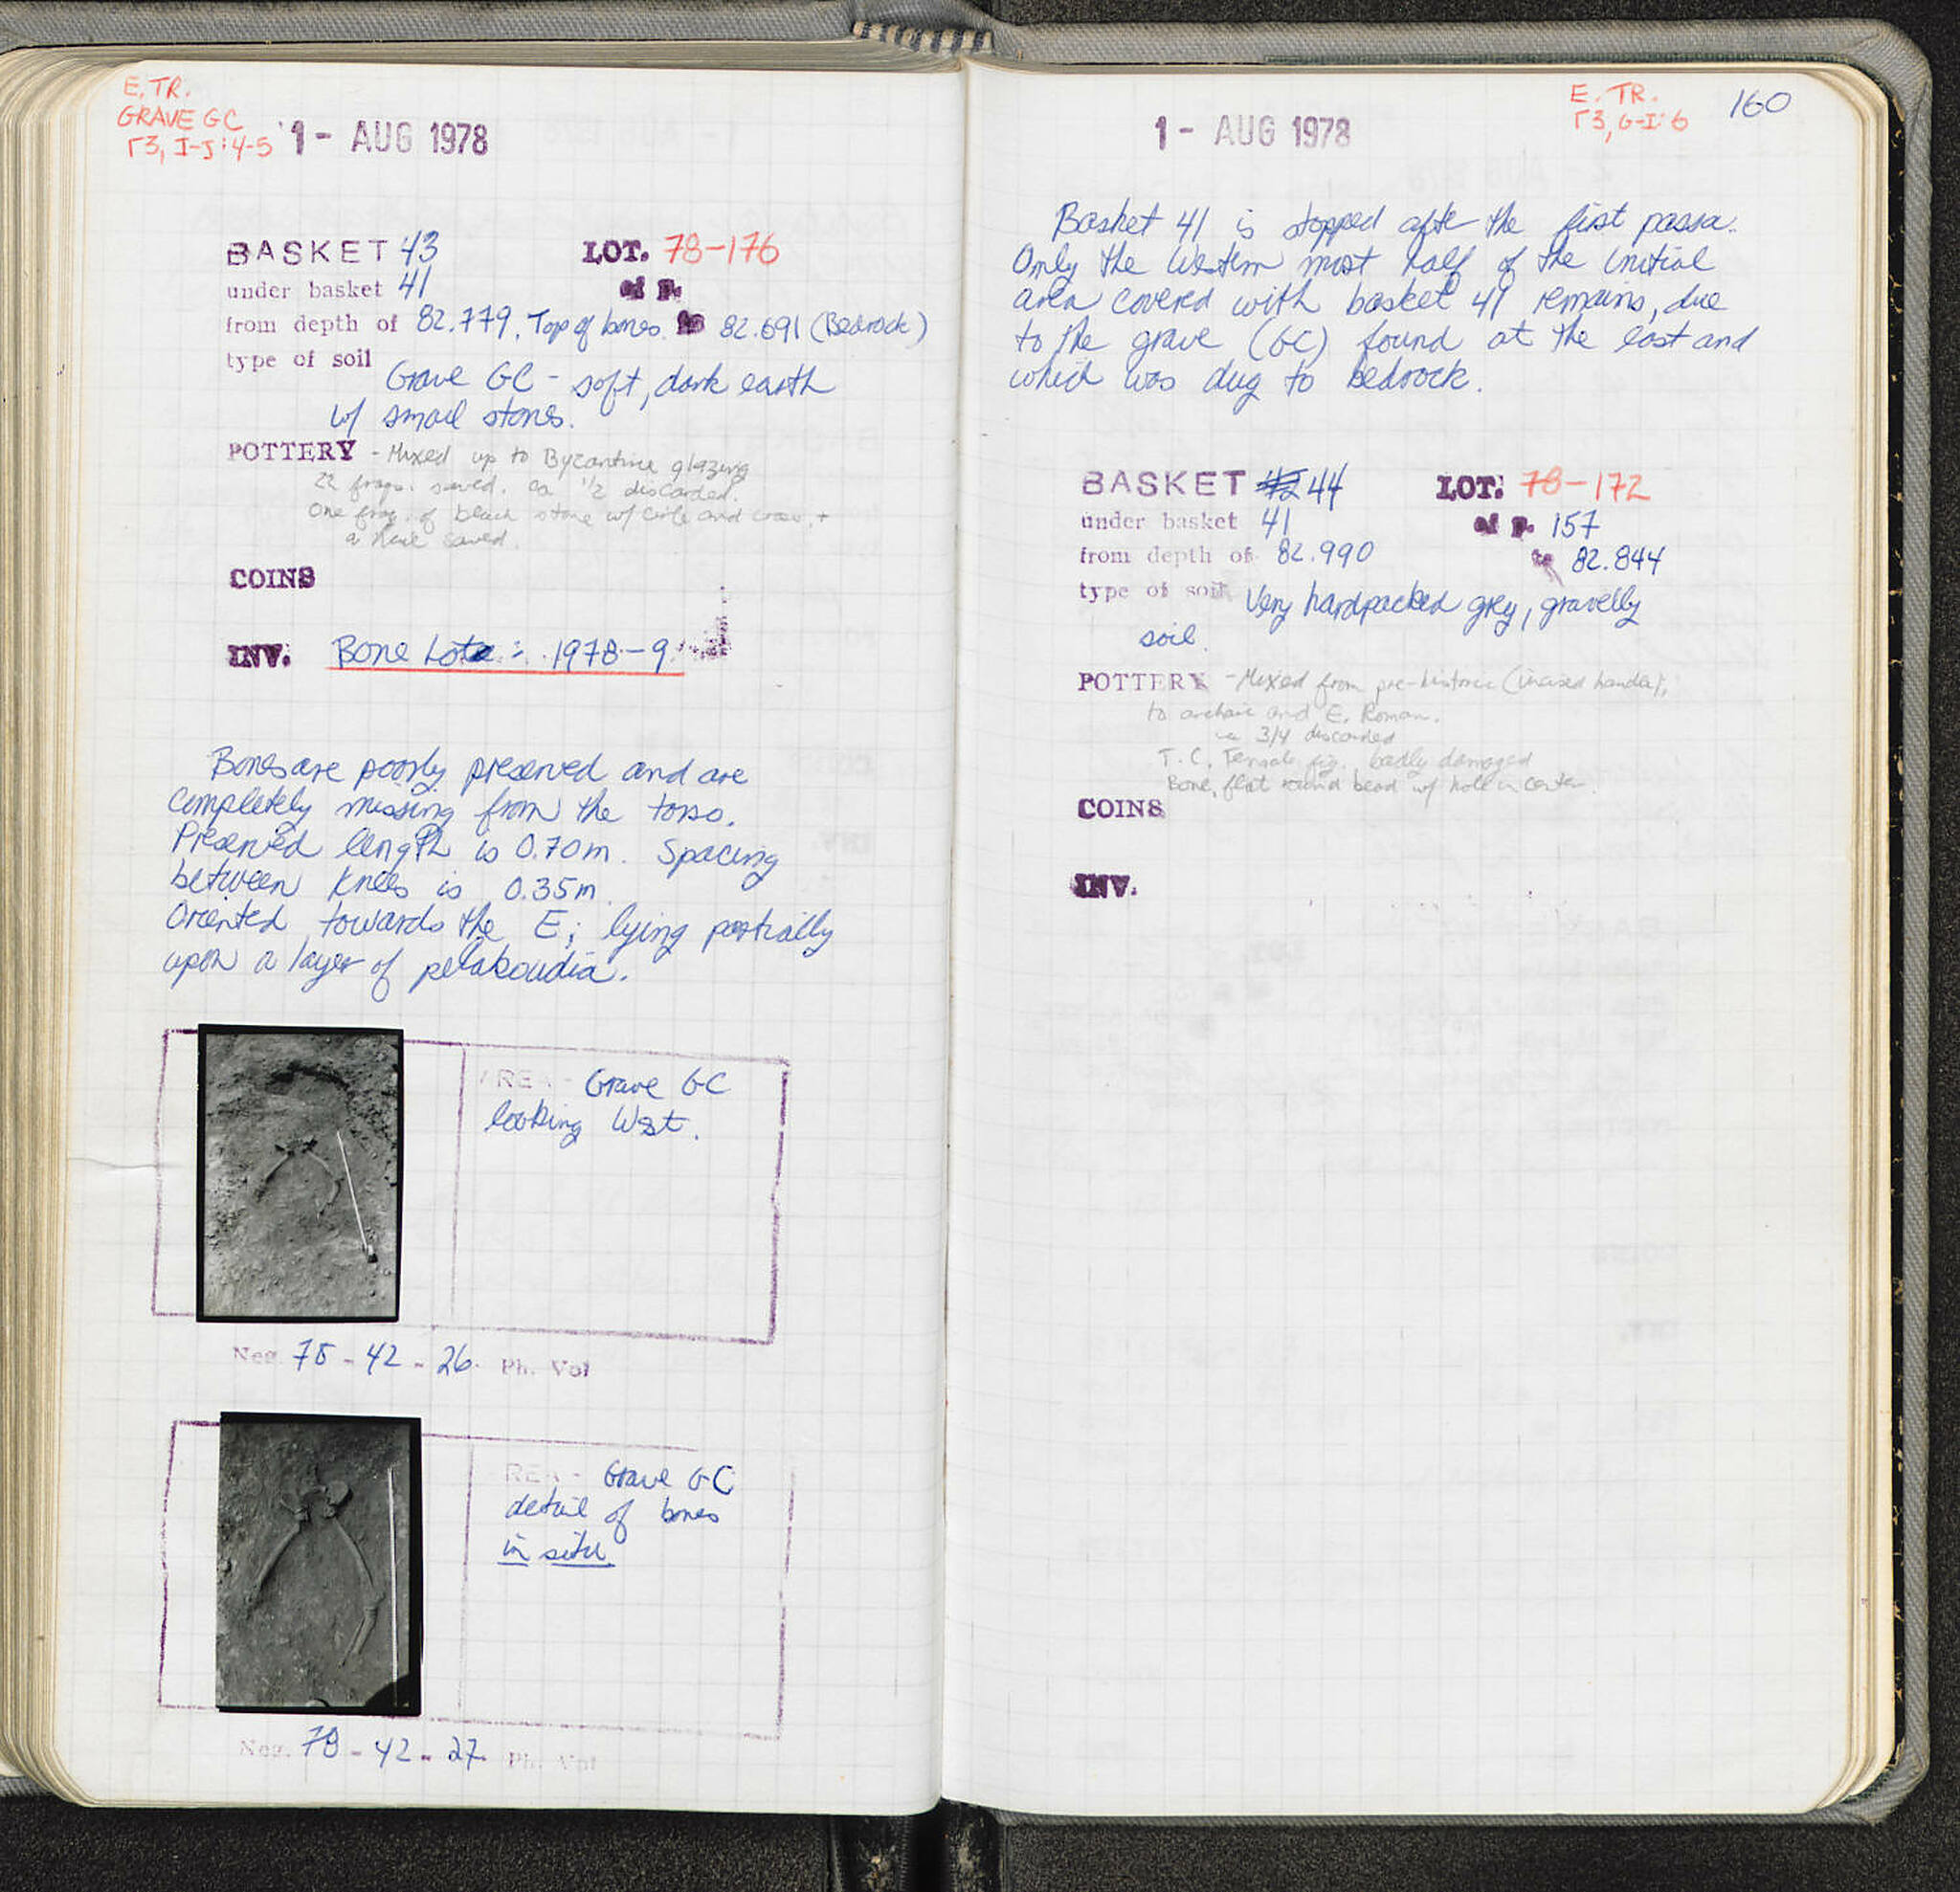 E. TR.
GRAVE GC
Γ3, I-J:4-5
1- AUG 1978
BASKET 43 LOT. 78-176
under basket 41 of p.
from depth of 82.779, Top of bones. to 82.691 (Bedrock)
type of soil Grave GC - soft, dark earth
w/ small stones.
POTTERY - Mixed up to Byzantine glazing
22 frags. saved. ca 1/2 discarded.
One frag. of black stone w/ circle and cross, +
a saved.
COINS
INV. Bone Lot : 1978-9
Bones are poorly preserved and are
completely missing from the torso.
Preserved length is 0.70m. Spacing
between knees is 0.35m.
Oriented towards the E; lying partially
upon a layer of petakoudia.
AREA - Grave GC
looking West.
Neg. 78-42-26. Ph. Vol
AREA - Grave GC
detail of bones
in situ.
Neg. 78-42-27. Ph. Vol
1- AUG 1978
E. TR.
Γ3, G-I:6
160
Basket 41 is stopped after the first passa.
Only the Western most half of the initial
area covered with basket 41 remains, due
to the grave (GC) found at the east and
which was dug to bedrock.
BASKET 44 LOT. 78-172
under basket 41 of p. 157
from depth of 82.990 to 82.844
type of soil Very hardpacked grey, gravelly
soil.
POTTERY - Mixed from pre-historic (incised handle),
to archaic and E. Roman.
ca 3/4 discarded
T.C. Female fig. badly damaged
Bone, flat round bead w/ hole in center.
COINS
INV.